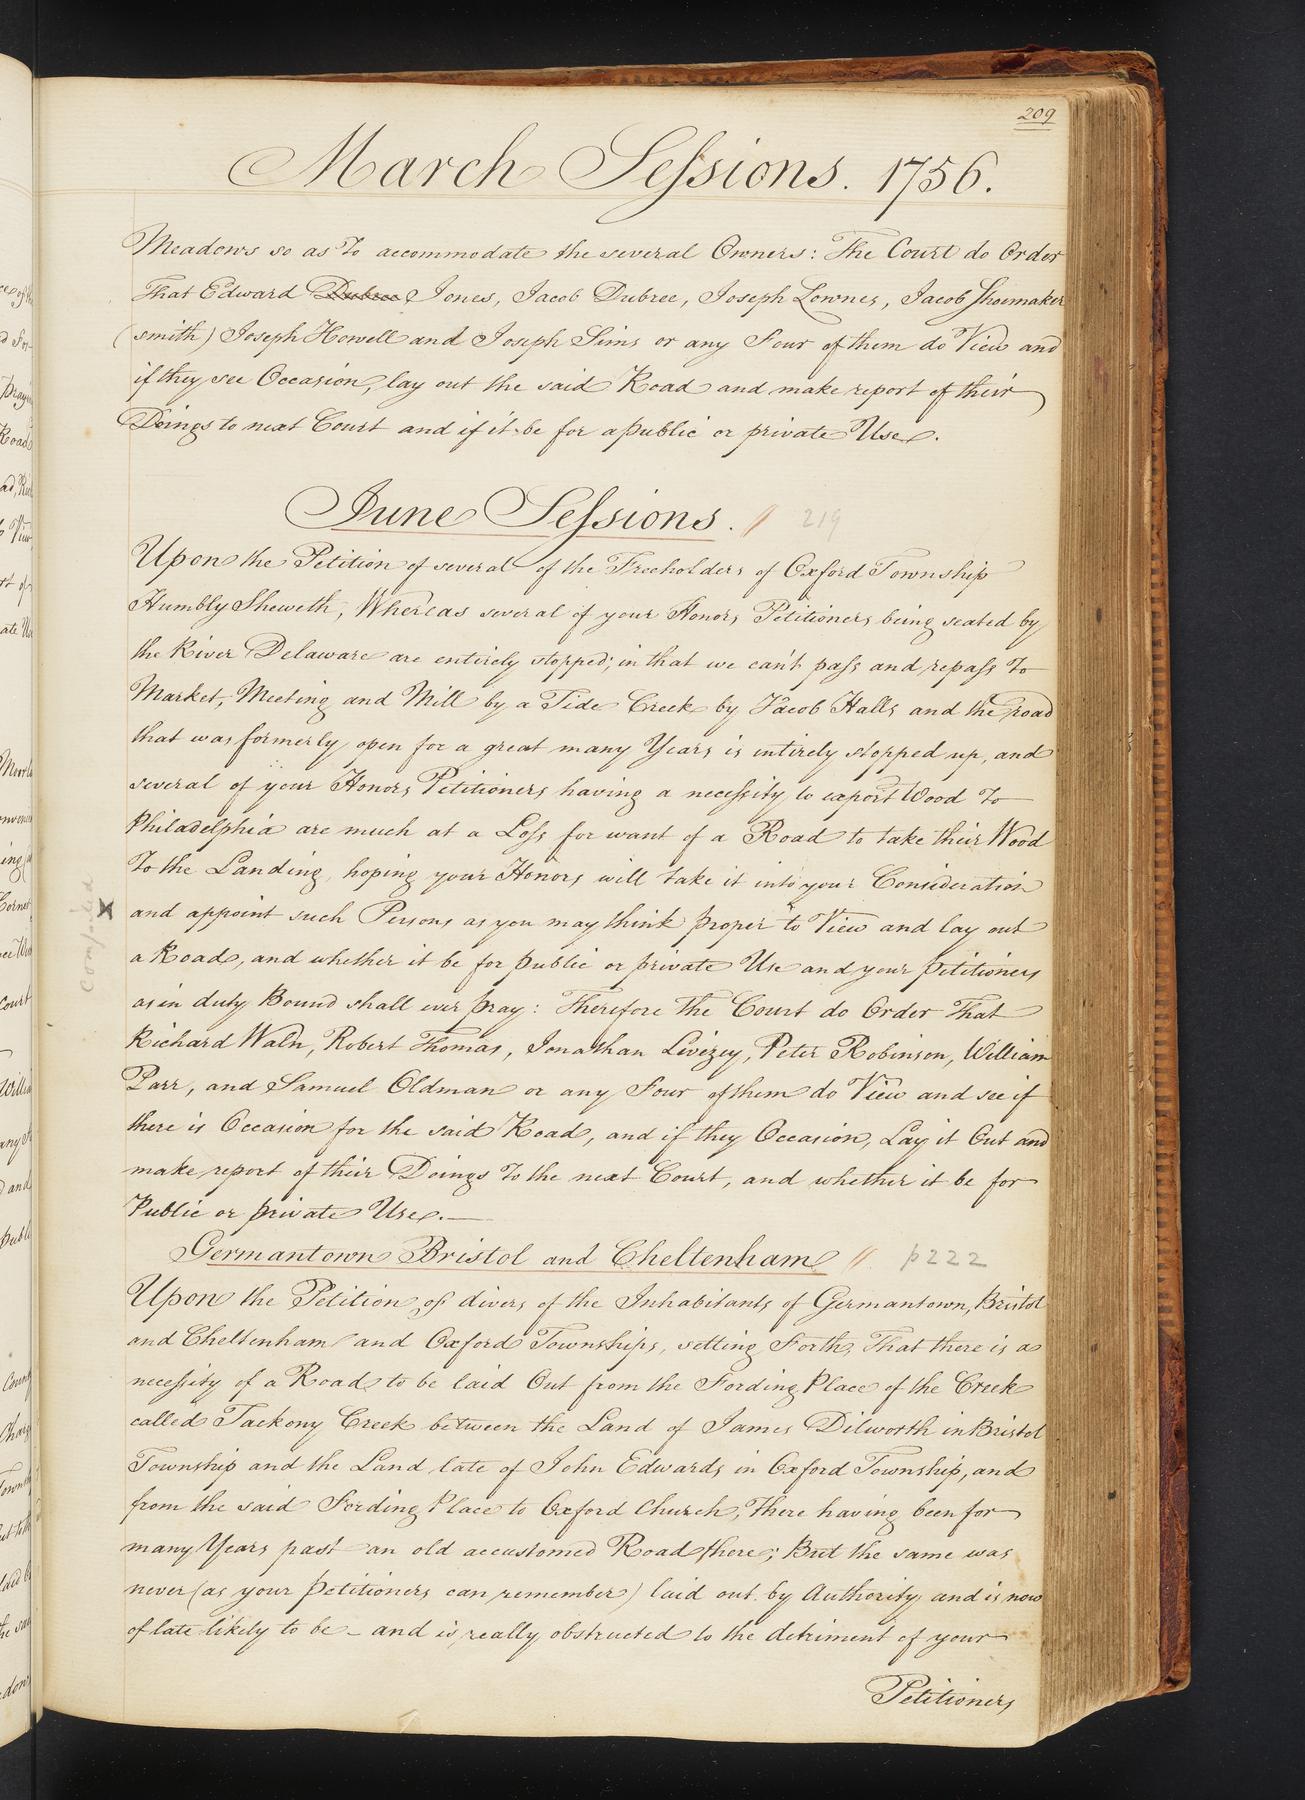 209
March Sessions. 1756.
Meadows so as To accommodate the several Owners: The Court do Order
That Edward Dubree Jones, Jacob Dubree, Joseph Lownes, Jacob Shoemaker
(smith) Joseph Howell and Joseph Sims or any Four of them do View and
if they see Occasion, lay out the said Road and make report of their
Doings to next Court and if it be for a public or private Use.
June Sessions. // 219
Upon the Petition of several of the Freeholders of Oxford Township
Humbly Sheweth, Whereas several of your Honors Petitioners being seated by
the River Delaware are entirely stopped; in that we can't pass and repass To
Market, Meeting and Mill by a Tide Creek by Jacob Halls and the road
that was formerly open for a great many Years is entirely stopped up, and
several of your Honors Petitioners having a necessity to export Wood To
Philadelphia are much at a Loss for want of a Road to take their Wood
To the Landing, hoping your Honors will take it into your Consideration
and appoint such Persons as you may think proper to View and lay out
a Road, and whether it be for public or private Use and your petitioners
as in duty Bound shall ever pray: Therefore the Court do Order That
Richard Waln, Robert Thomas, Jonathan Livezey, Peter Robinson, William
Parr, and Samuel Oldman or any Four of them do View and see if
there is Occasion for the said Road, and if they Occasion, Lay it Out and
make report of their Doings To the next Court, and whether it be for
Public or private Use.—
Germantown Bristol and Cheltenham // p222
Upon the Petition of divers of the Inhabitants of Germantown, Bristol
and Cheltenham and Oxford Townships, setting Forth, That there is a
necessity of a Road to be laid Out from the Fording Place of the Creek
called Tackony Creek between the Land of James Dilworth in Bristol
Township and the Land late of John Edwards in Oxford Township, and
from the said Fording Place to Oxford Church, There having been for
many Years past an old accustomed Road there; But the same was
never (as your petitioners can remember) laid out by Authority and is now
of late likely to be – and is really obstructed to the detriment of your
Petitioners